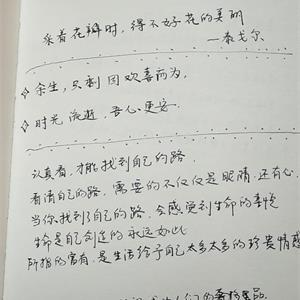 采着花瓣时，得不到花的美丽
—泰戈尔
余生，只剩因欢喜而为，
时光流逝，吾心更安.
认真看，才能找到自己的路，
看清自己的路，需要的不仅仅是眼睛，还有心，
当你找到了自己的路，会感觉到生命的喜悦
生命是自己创造的永远如此
所指的富有，是生活给予自己太多太多的珍贵情感